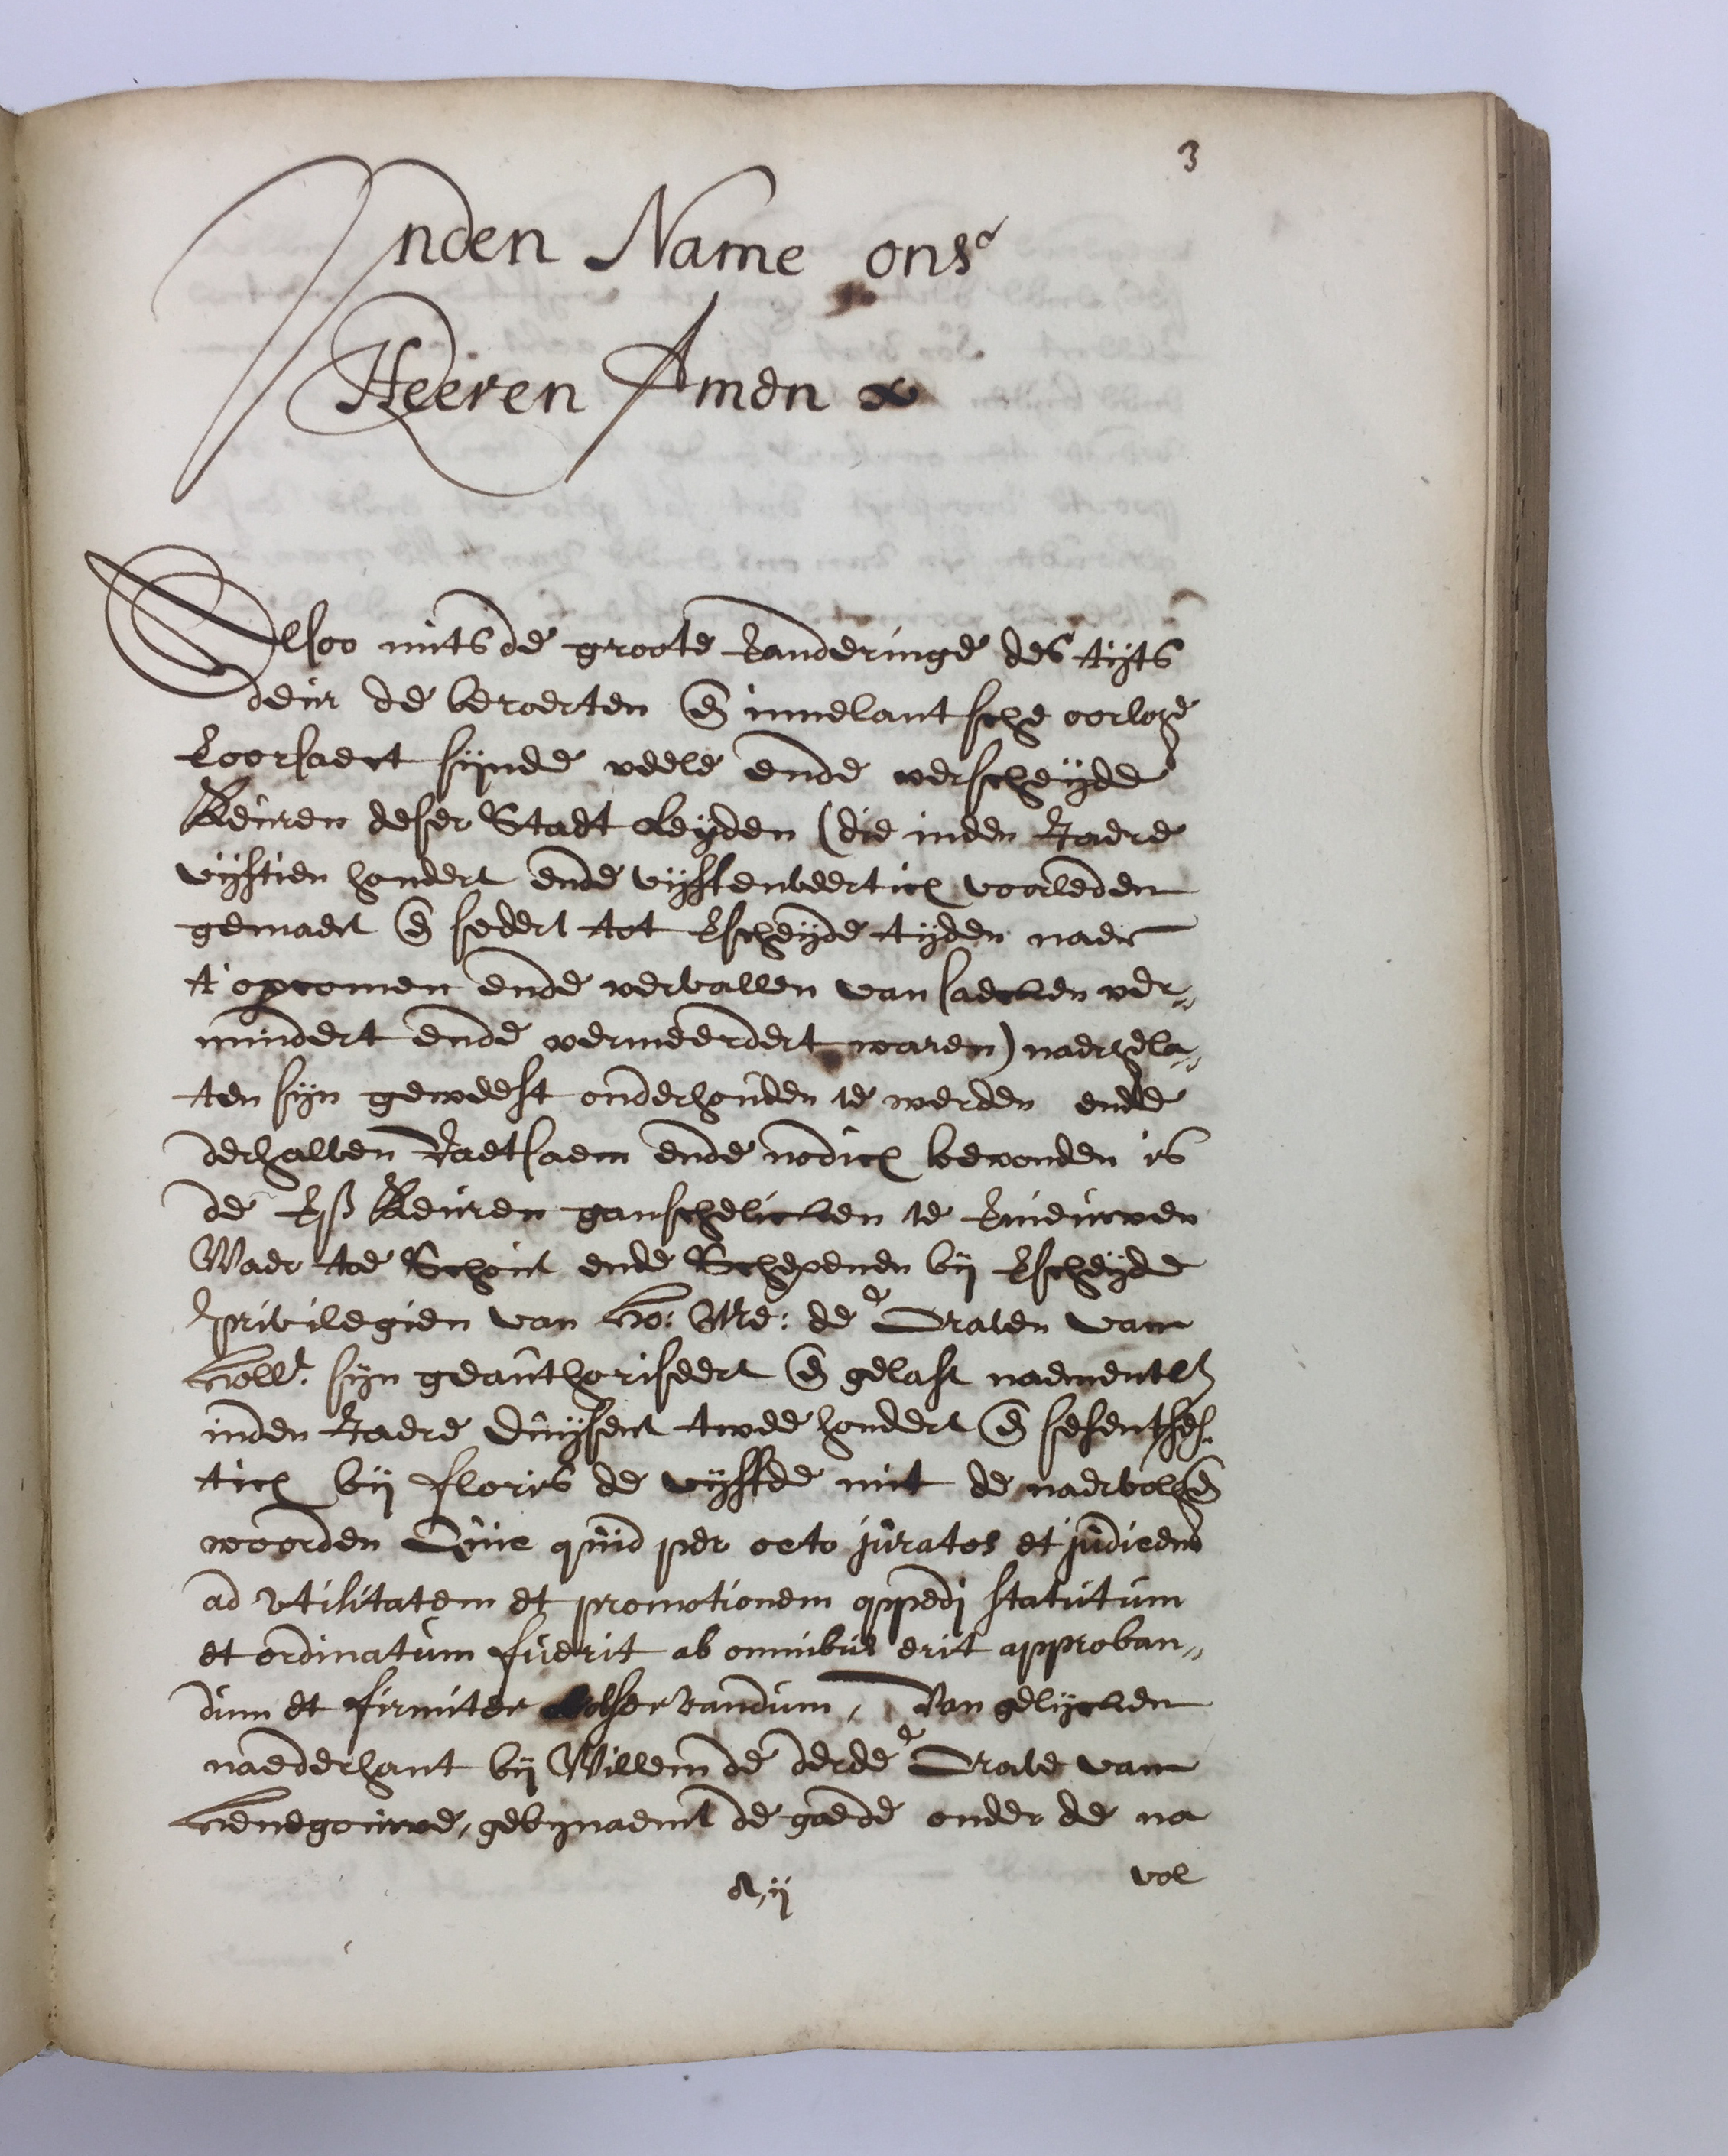 3
Inden Name ons
Heeren Amen
Alsoo mits de groote veranderinge des tijts
deur de beroerten en innelantsche oorloge
veroorsaect sijnde veele ende verscheyde
Keuren deser Stadt Leyden (die inden Jaere
vijftien hondert ende vijffenveertich voorleden
gemaect en sedert tot verscheyde tijden naer
t'opcomen ende vervallen van saecken ver„
mindert ende vermeerdert waren) naergela„
ten sijn geweest onderhouden te werden ende
derhalven Raetsaem ende nodich bevonden is
de Keuren ganschelicken te vernieuwen
Waer toe Schout ende Schepenen bij verscheyde
privilegien van Ho: Me: de Graven van
Holl.t sijn geauthoriseert en gelast naementl
inden Jaere Duysent twee hondert en sesentses„
tich bij floris de vijffde mit de naervolgen
woorden Quic quid per octo juratos et judicem
ad vtilitatem et promotionem oppedj statutum
et ordinatum fuerit ab omnibus erit approban„
dum et firmiter observandum, Van gelijcken
naederhant bij Willem de derde Grave van
Henegouwe, gebijnaemt de goede onder de na
A,ij
vol